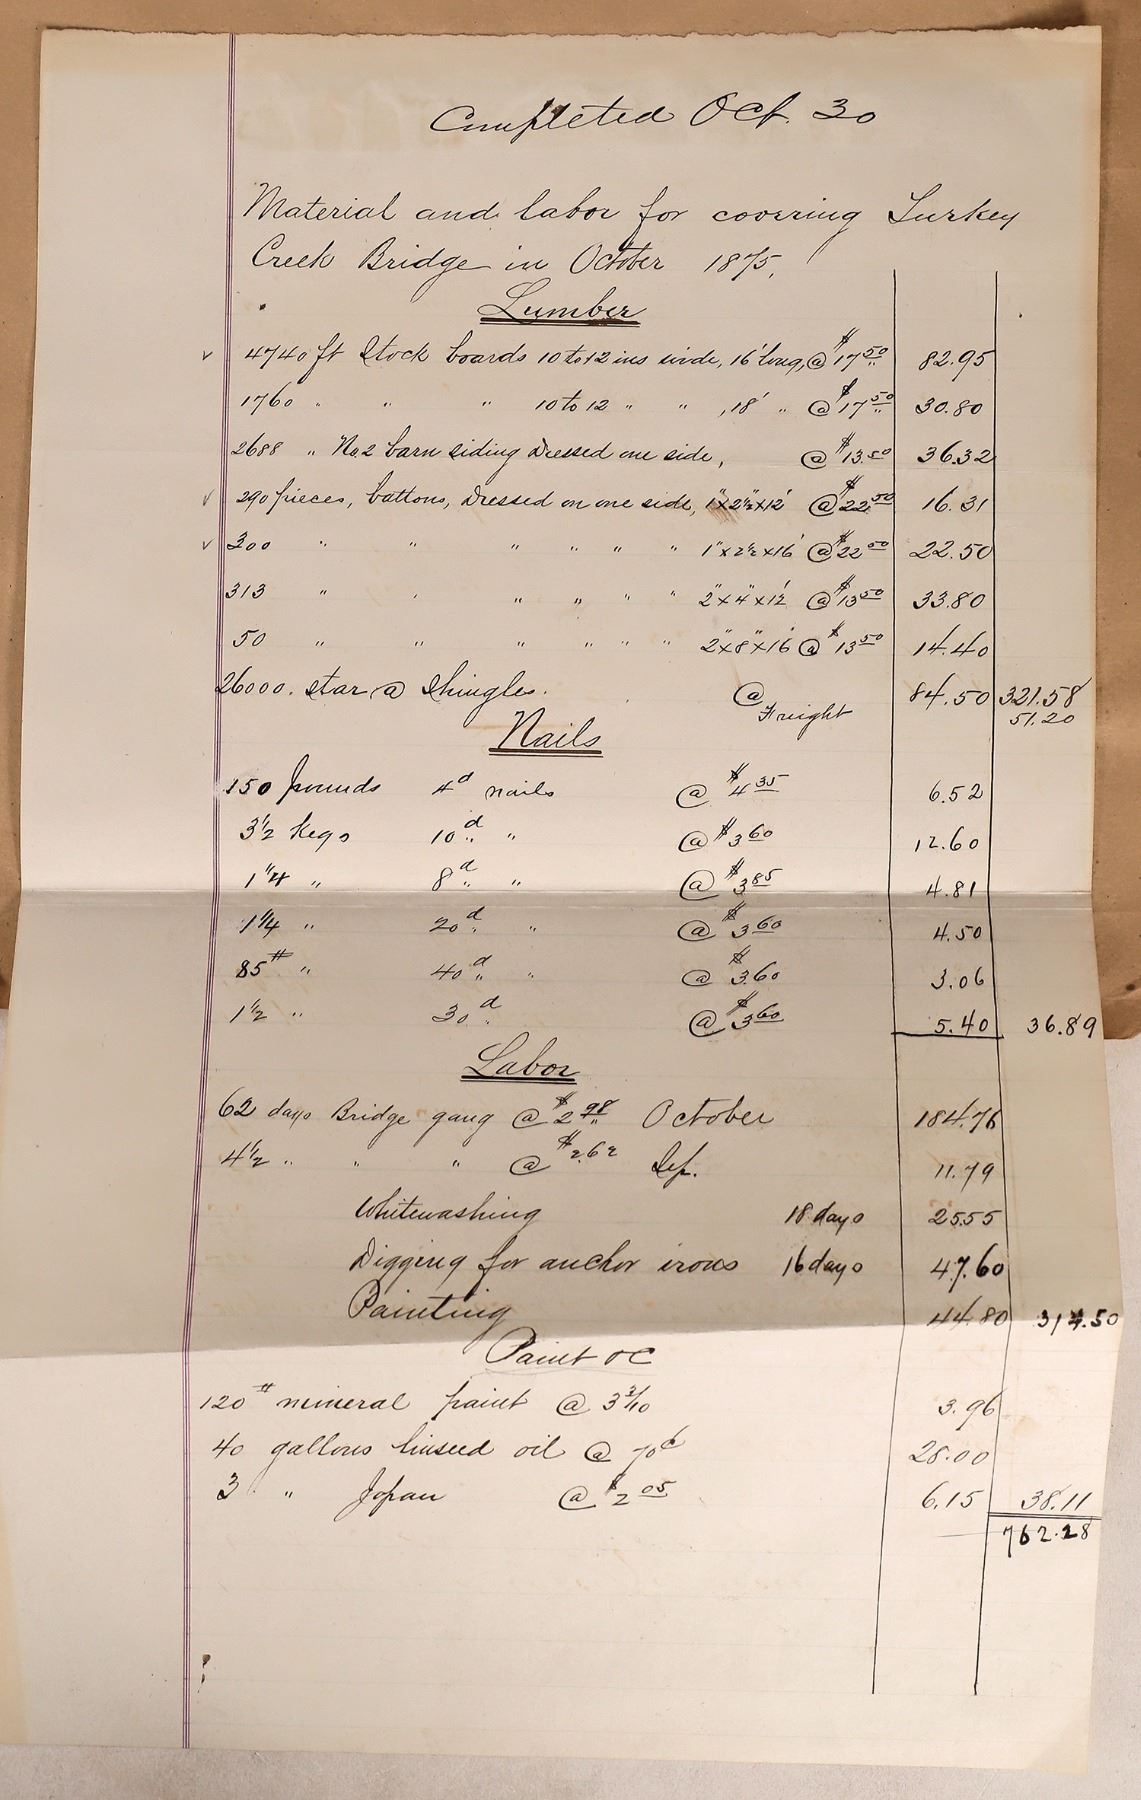 Completed Oct. 30
Material and labor for covering Turkey
Creek Bridge in October 1875.
Lumber
✓ 4740 ft Stock boards 10 to 12 ins wide, 16' long, @ $17 50 82.95
1760 " " " 10 to 12 " " , 18' " @ $17 50 30.80
2688 " No 2 barn siding Dressed one side, @ $13.50 36.32
✓ 290 pieces, battons, Dressed on one side, 1"x2½"x12' @ $22 50 16.31
✓ 300 " " " " " " 1"x2½x16' @ $22 50 22.50
313 " " " " " " 2"x4"x12' @ $13 50 33.80
50 " " " " " " 2"x8"x16' @ $13 50 14.40
26000. Star @ Shingles. @ 84.50 321.58
Freight 51.20
Nails
150 pounds 4d nails @ $4 35 6.52
3½ kegs 10d " @ $3 60 12.60
1¼ " 8d " " @ $3 85 4.81
1¼ " 20d " @ $3 60 4.50
85# " 40d " " @ $3.60 3.06
1½ " 30d " @ $3 60 5.40 36.89
Labor
62 days Bridge gang @ $2 98 October 184.76
4½ " " " @ $2.62 Sep. 11.79
Whitewashing 18 days 25.55
Digging for anchor irons 16 days 47.60
Painting 44.80 314.50
Paint &c
120# mineral paint @ 3 3/10 3.96
40 gallons linseed oil @ 70¢ 28.00
3 " Japan @ $2 05 6.15 38.11
762.28